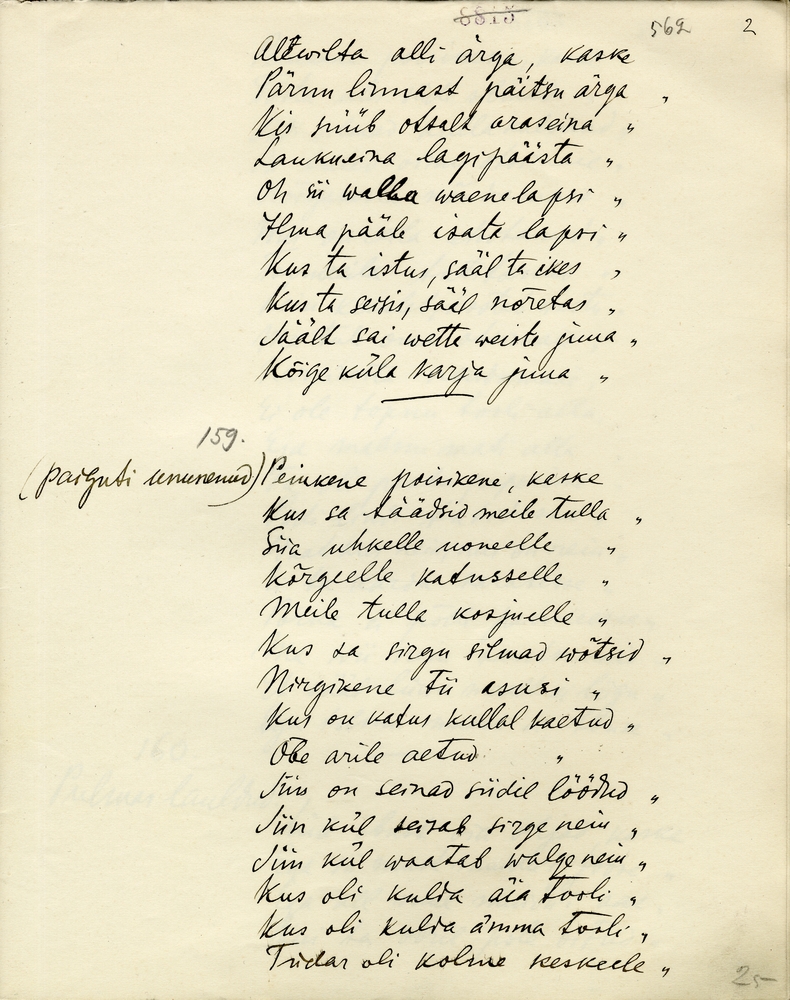 562 2
Altwilta olli ärga, kaske
Pärnu linnast päitsu ärga „
Kis süüb otsalt oraseina „
Laukueina lagipäästa „
Oh sii walla waenelapsi „
Ilma pääle isata lapsi „
Kus ta istus, sääl ta ikes „
Kus ta seisis, sääl nõretas „
Säält sai wette weiste juua „
Kõige küla karja juua „
159.
(paiguti ununenud) Peiukene poisikene, kaske
Kus sa täädsid meile tulla „
Siia uhkelle uoneelle „
Kõrgeelle katusselle „
Meile tulla kosjuelle „
Kus sa sirgu silmad wõtsid „
Nirgikene tii asusi „
Kus on katus kullal kaetud „
Õbe arile aetud „
Siin on seinad siidil löödud „
Siin kül seisab sirge neiu „
Siin kül waatab walge neiu „
Kus oli kulda äia tooli „
Kus oli kulda ämma tooli „
Tüdar oli kolme keskeele „
25